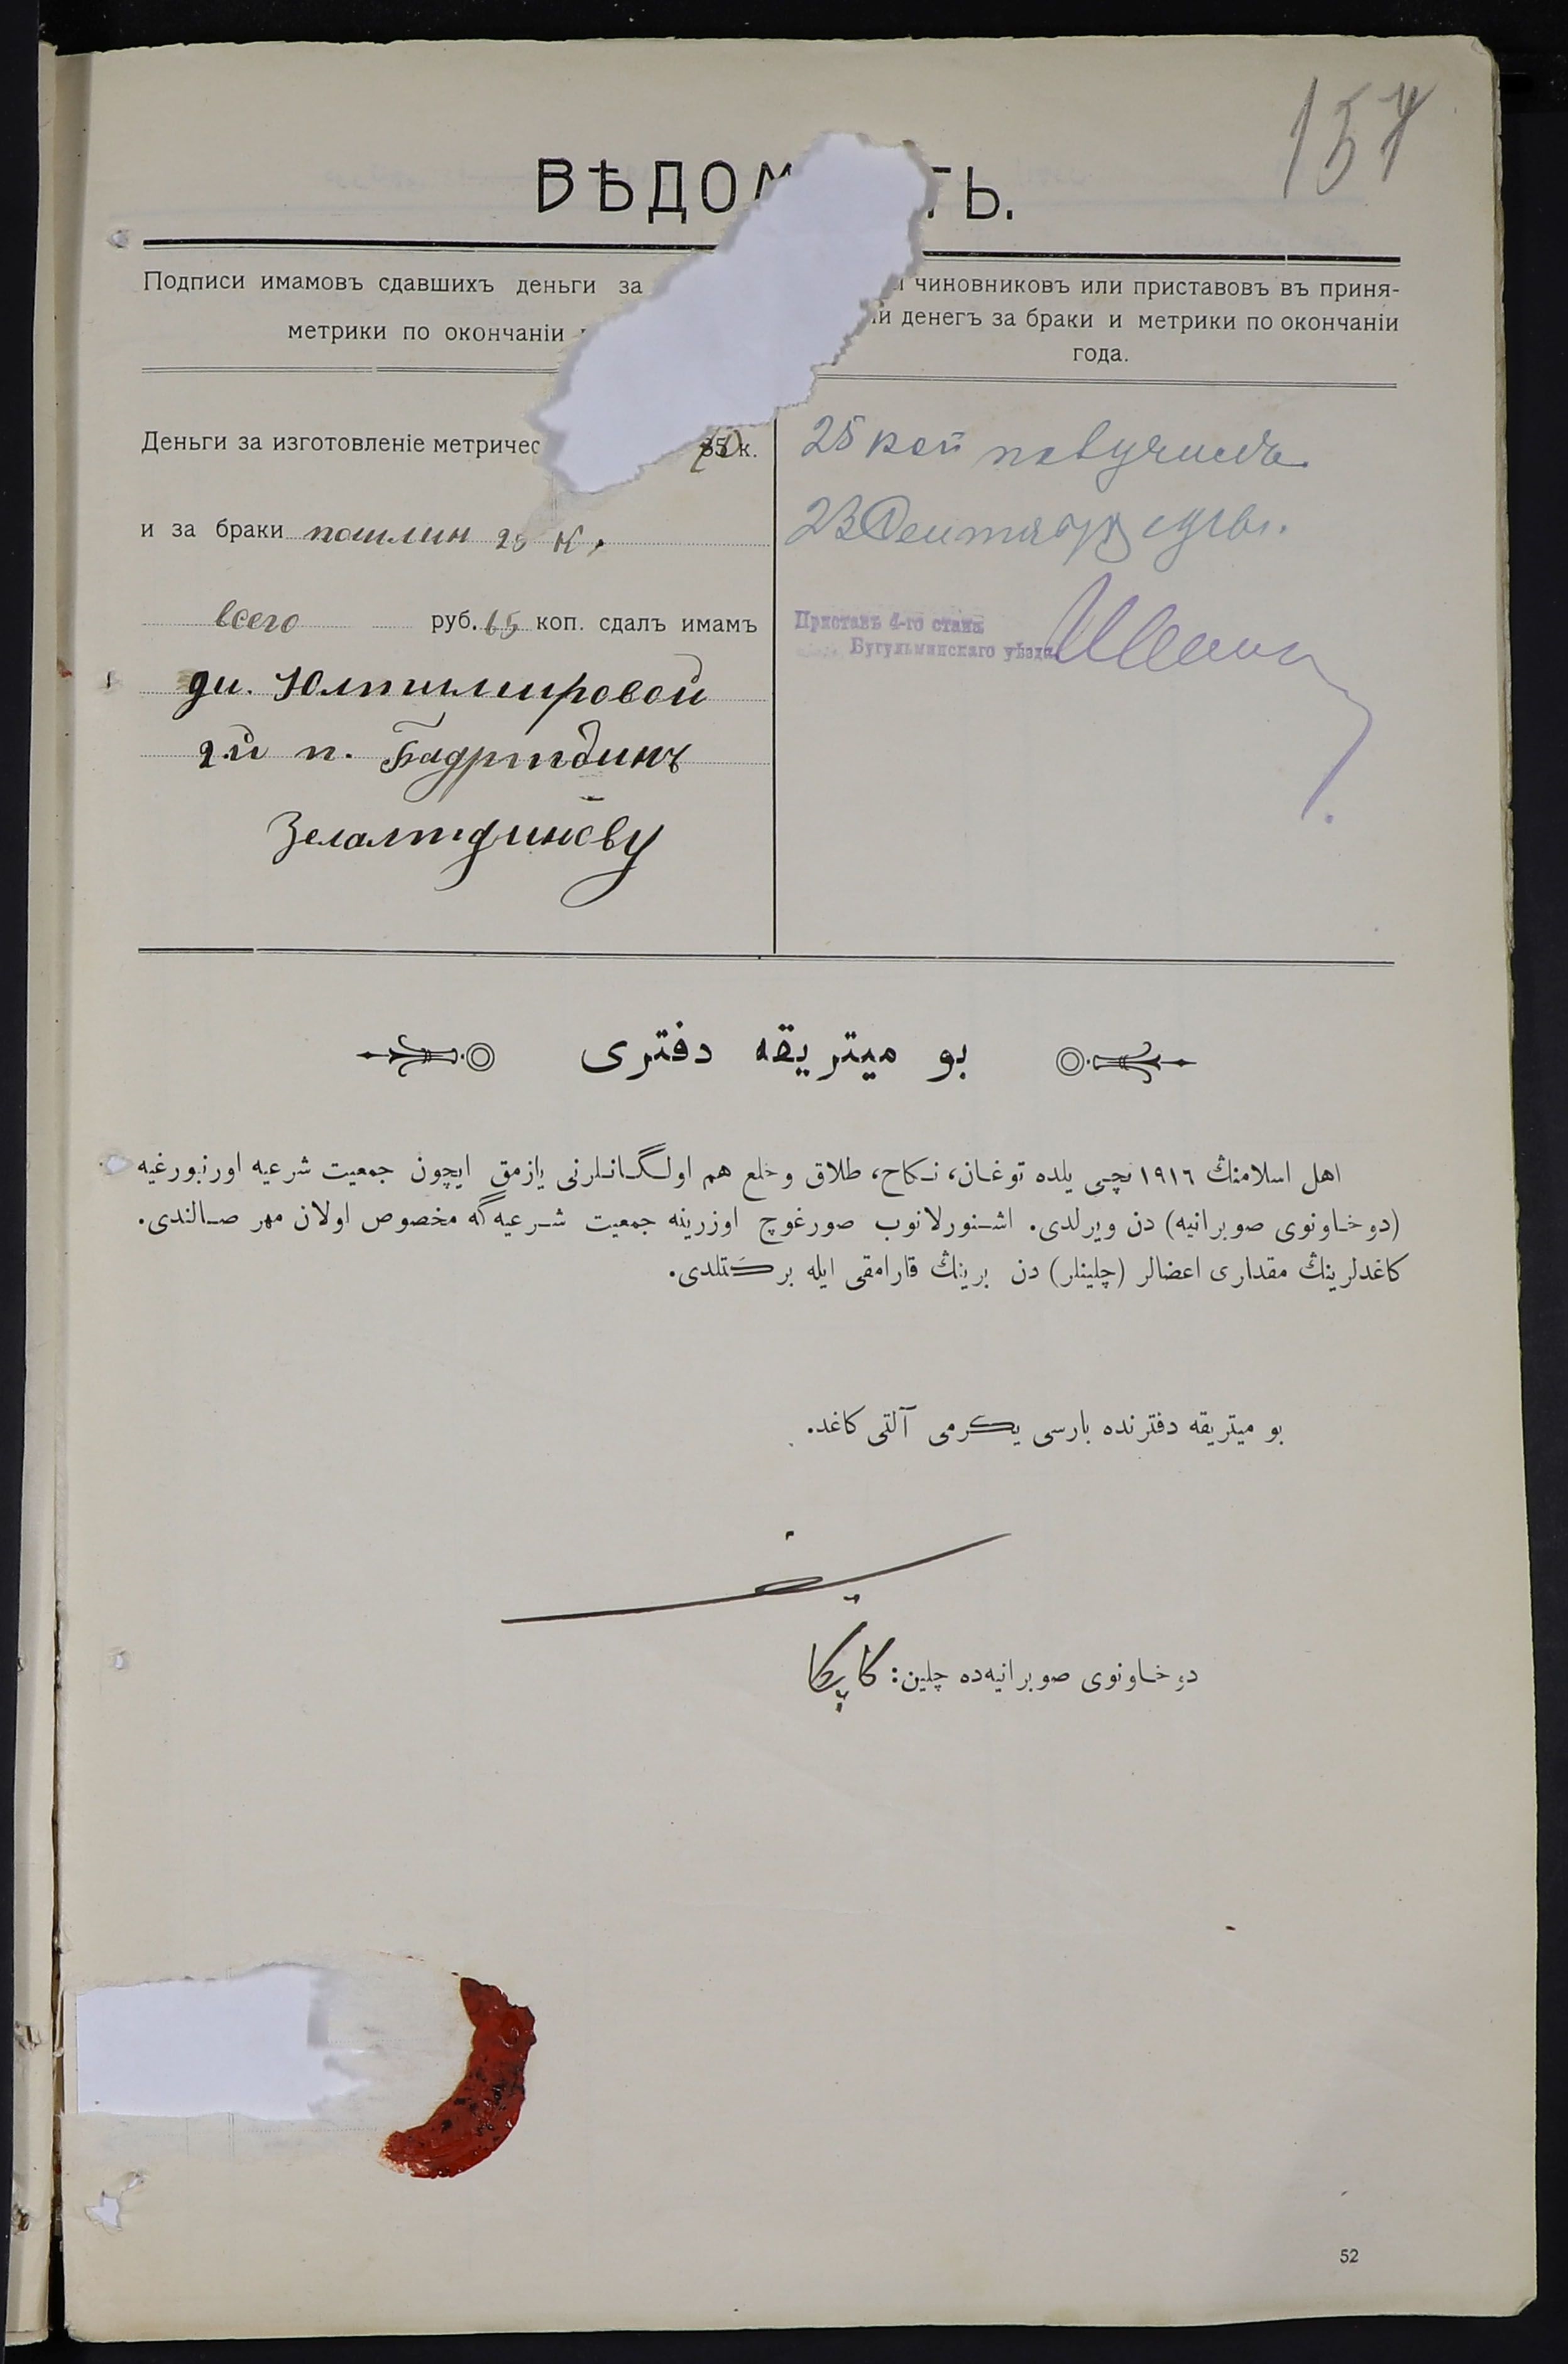 157
ВѢДОМ ТЬ.
Подписи имамовъ сдавшихъ деньги за
метрики по окончаніи
чиновниковъ или приставовъ въ приня-
тіи денегъ за браки и метрики по окончаніи
года.
Деньги за изготовленіе метричес к.
и за браки пошлин 25 к.
всего руб. 65 коп. сдалъ имамъ
ди. Юлтимировой
2й п. Бадритдинъ
Зелалтдинову
25 коп получилъ
23 Сентября
Приставъ 4-го стана
Бугульминскаго уѣзда
بو ميتريقه دفترى
اهل اسلامنڭ ١٩١٦ نچى يلده توغان، نكاح، طلاق وخلع هم اولگانلرنى يازمق ايچون جمعيت شرعيه اورنبورغيه
(دوخاونوى صوبرانيه) دن ويرلدى. اشنورلانوب صورغوچ اوزرينه جمعيت شرعيه‌گه مخصوص اولان مهر صالندى.
كاغدلرينڭ مقدارى اعضالر (چلينلر) دن برينڭ قارامقى ايله بركتلدى.
بو ميتريقه دفترنده بارسى يكرمى آلتى كاغد.
دوخاونوى صوبرانيه‌ده چلين:
52